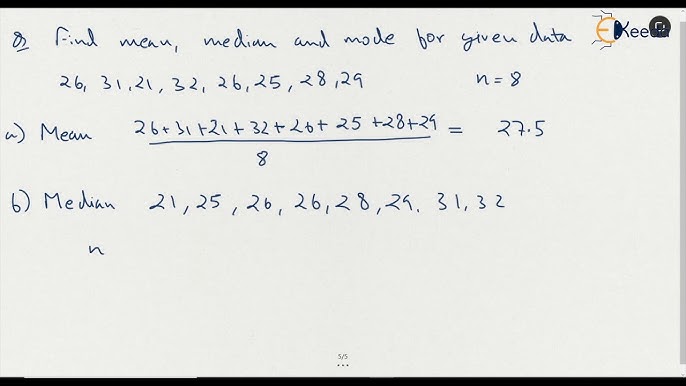 Q Find mean, median and mode for given data
Ekeeda
26, 31, 21, 32, 26, 25, 28, 29 n = 8
a) Mean 26+31+21+32+26+25+28+29 = 27.5
8
b) Median 21, 25, 26, 26, 28, 29, 31, 32
n
5/5